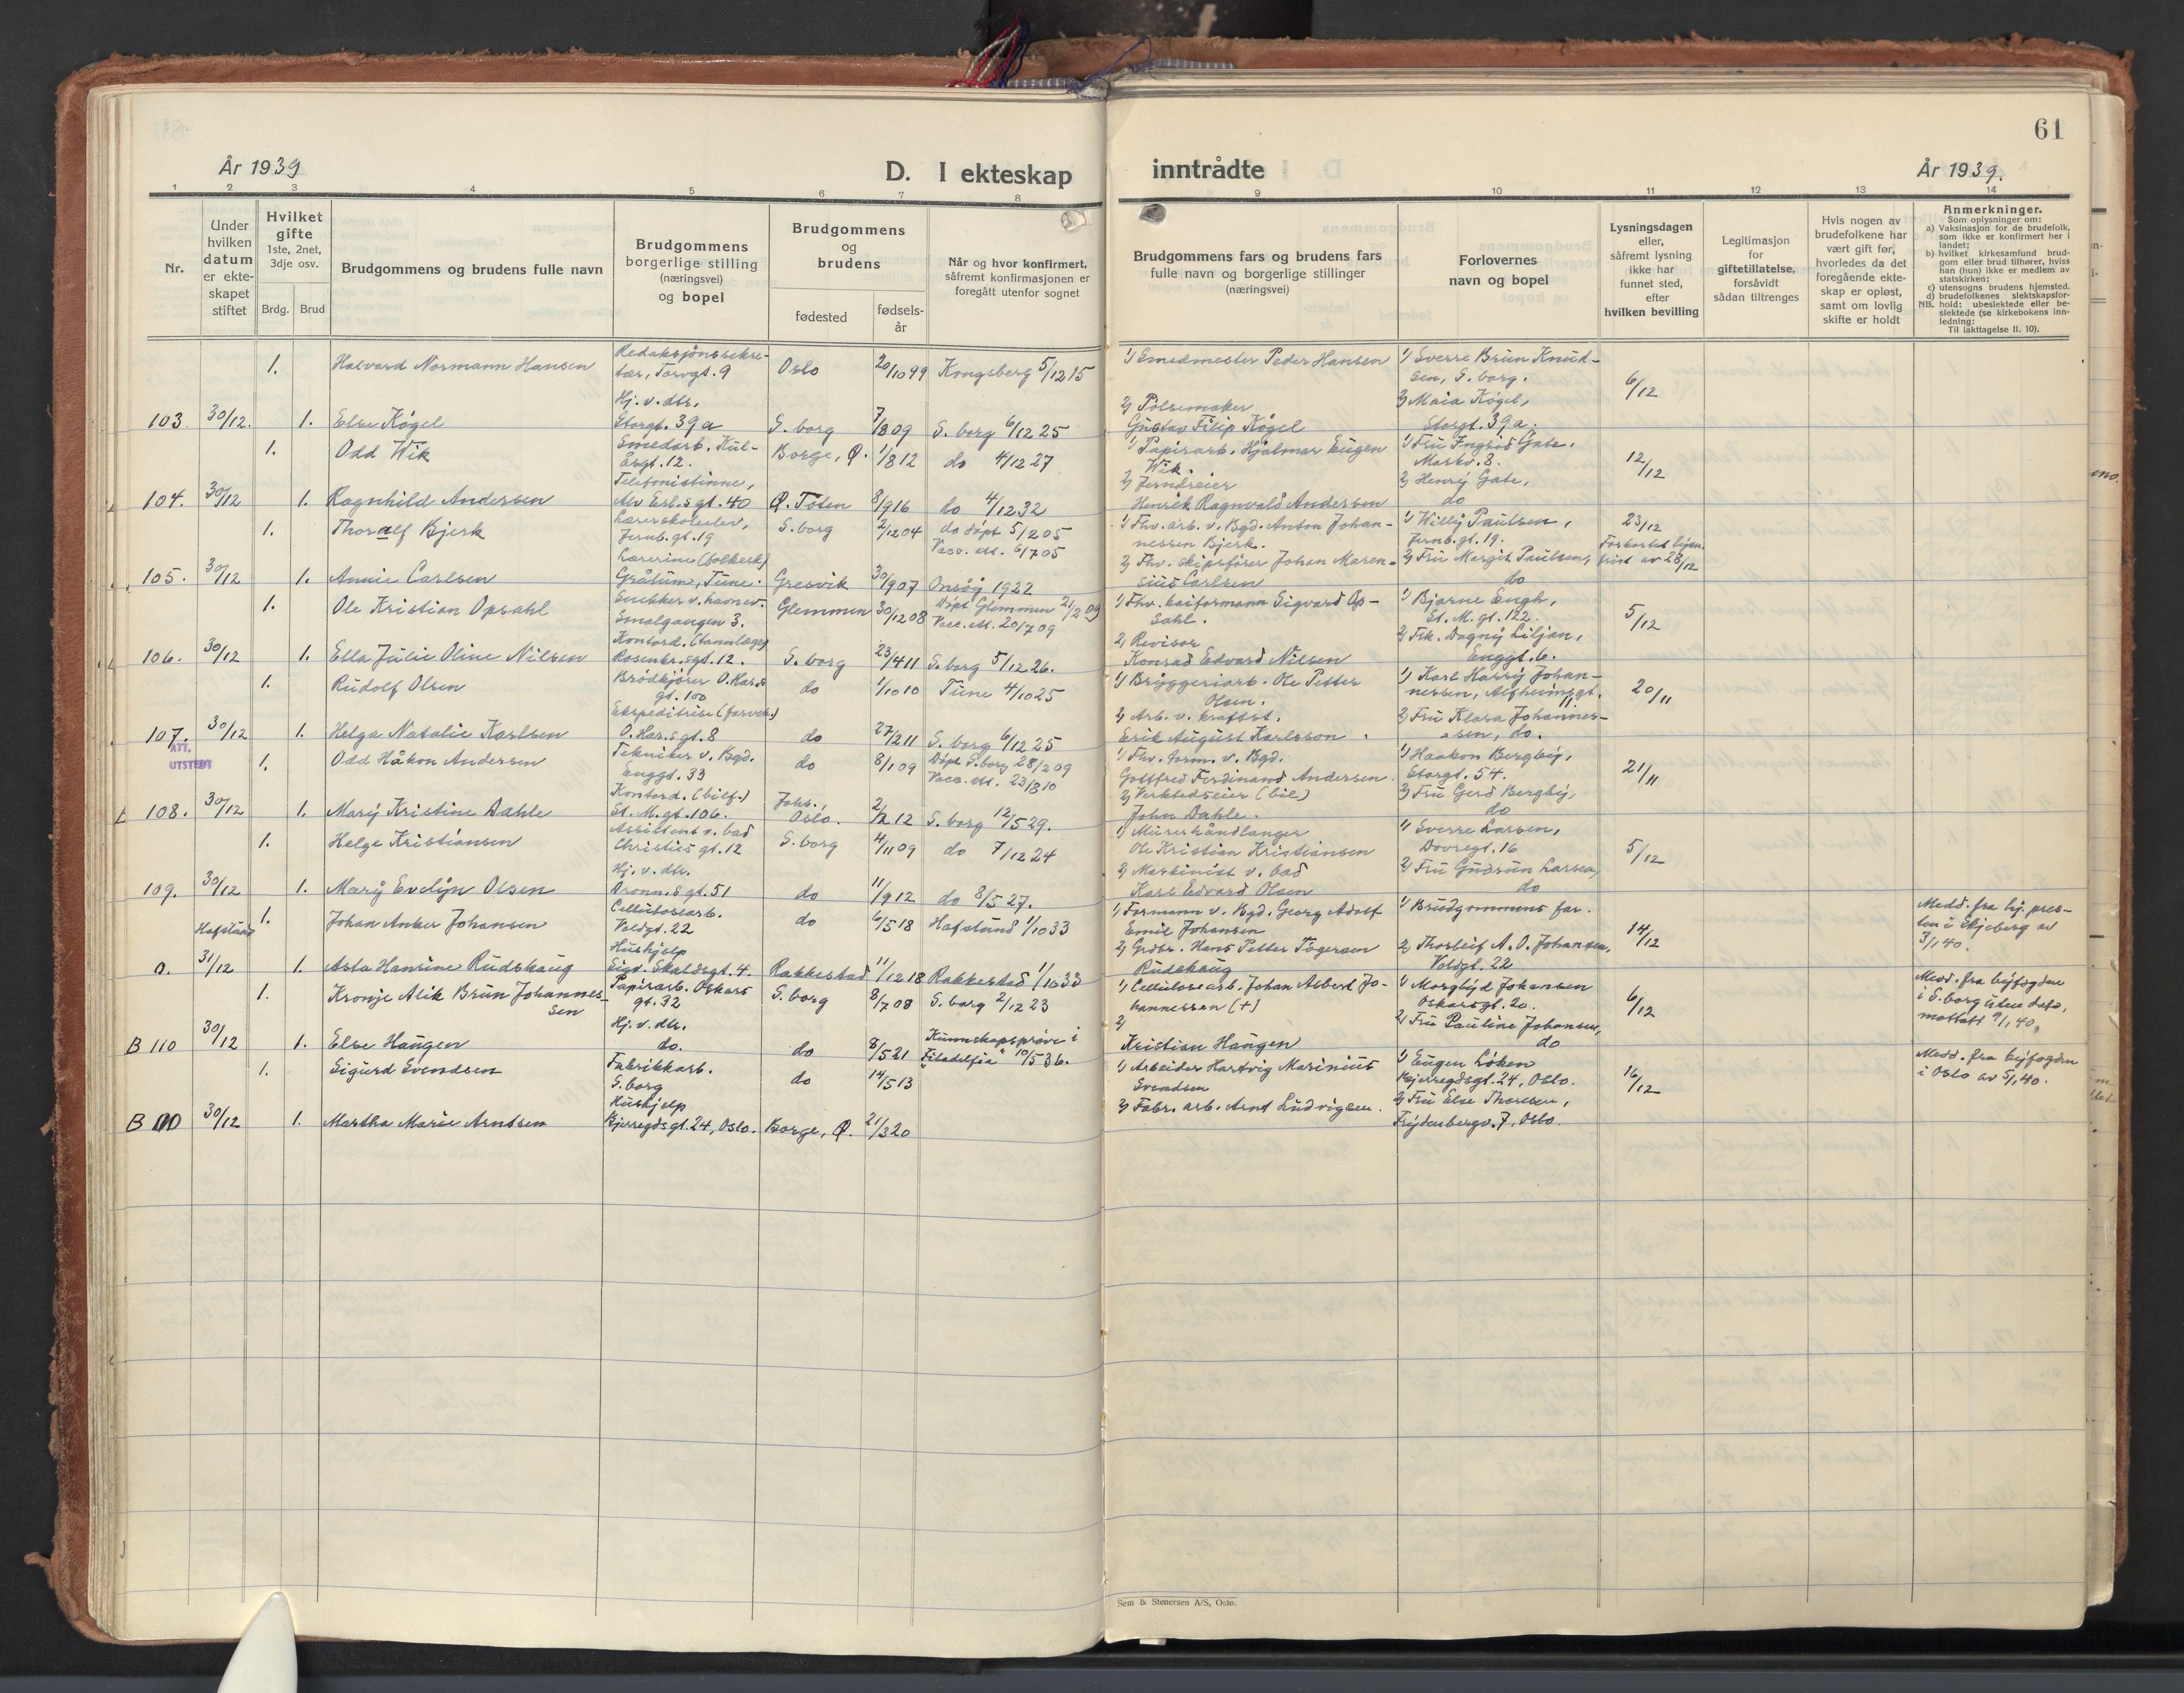 61
År 1939
D. I ekteskap inntrådte
År 1939.
1 2 3 4 5 6 7 8 9 10 11 12 13 14
Nr.
Under hvilken datum er ekteskapet stiftet
Hvilket gifte
1ste, 2net, 3dje osv.
Brdg. Brud
Brudgommens og brudens fulle navn
Brudgommens borgerlige stilling (næringsvei) og bopel
Brudgommens og brudens
fødested
fødselsår
Når og hvor konfirmert, såfremt konfirmasjonen er foregått utenfor sognet
Brudgommens fars og brudens fars fulle navn og borgerlige stillinger (næringsvei)
Forlovernes navn og bopel
Lysningsdagen eller, såfremt lysning ikke har funnet sted, efter hvilken bevilling
Legitimasjon for giftetillatelse, forsåvidt sådan tiltrenges
Hvis nogen av brudefolkene har vært gift før, hvorledes da det foregående ekteskap er opløst, samt om lovlig skifte er holdt
Anmerkninger.
Som oplysninger om:
a) Vaksinasjon for de brudefolk, som ikke er konfirmert her i landet;
b) hvilket kirkesamfund brudgom eller brud tilhører, hviss han (hun) ikke er medlem av statskirken;
c) utensogns brudens hjemsted.
d) brudefolkenes slektskapsforhold: ubeslektede eller beslektede (se kirkebokens innledning:
NB. Til iakttagelse II. 10).
1. Halvard Normann Hansen Redaksjonssekretær, Torvgt. 9 Oslo 20/10 99 Kongsberg 5/12 15 1) Smedmester Peder Hansen 1) Sverre Brun Knudsen, S.borg. 6/12
103. 30/12. 1. Else Kögel Hj. v. dtr. Storgt. 39a S.borg 7/8 09 S.borg 6/12 25 2) Pölsemaker Gustav Filip Kögel 2) Maia Kögel, Storgt. 39a.
1. Odd Wik Smedarb. Kulåsgt. 12. Borge, Ø. 1/8 12 do 4/12 27 1) Papirarb. Hjalmar Eugen Wik. 1) Fru Ingrid Gate, Markv. 8. 12/12
104. 30/12 1. Ragnhild Andersen Telefonistinne, Alv Erl.s gt. 40 Ø. Toten 8/9 16 do 4/12 32 2) Jerndreier Henrik Ragnvald Andersen 2) Henry Gate, do
1. Thoralf Bjerk Lærerskoleelev, Jernb.gt. 19 S.borg 2/12 04 do döpt 5/2 05 Vacc. att. 6/7 05 1) Fhv. arb. v. Bgd. Anton Johannessen Bjerk. 1) Willy Paulsen, Jernb.gt. 19. 23/12
105. 30/12 1. Annie Carlsen Lærerinne (folkesk.) Grålum, Tune. Gresvik 30/9 07 Onsöy 1922 2) Fhv. skipsförer Johan Marensius Carlsen 2) Fru Margit Paulsen, do Forkortet lysn. frist av 28/12
1. Ole Kristian Opsahl Snekker v. havnev. Smalgangen 3. Glemmen 30/12 08 Döpt Glemmen 21/2 09 Vacc. att. 20/7 09 1) Fhv. kaiformann Sigvard Opsahl. 1) Bjarne Engh, St. M. gt. 122. 5/12
106. 30/12 1. Ella Julie Oline Nilsen Kontord. (tannlæge) Rosenkr.sgt. 12. S.borg 23/4 11 S.borg 5/12 26. 2) Revisor Konrad Edvard Nilsen 2) Frk. Dagny Liljan, Enggt. 6.
1. Rudolf Olsen Brödkjörer O. Har.s gt. 100 do 1/10 10 Tune 4/10 25 1) Bryggeriarb. Ole Petter Olsen. 1) Karl Harry Johannessen, Alfheimsgt. 11. 20/11
107. 30/12 1. Helga Natalie Karlsen Ekspeditrise (farveh.) O. Har.s gt. 8 do 27/2 11 S.borg 6/12 25 2) Arb. v. kraftst. Erik August Karlsson. 2) Fru Klara Johannessen, do.
ATT. UTSTEDT
1. Odd Håkon Andersen Tekniker v. Bgd. Enggt. 33 do 8/1 09 Döpt S.borg 28/2 09 Vacc. att. 23/8 10 1) Fhv. form. v. Bgd. Gottfred Ferdinand Andersen. 1) Haakon Bergby, Storgt. 54. 21/11
108. 30/12 1. Mary Kristine Dahle Kontord. (bilf.) St. M. gt. 106. Joh., Oslo. 2/2 12 S.borg 12/5 29. 2) Verkstedseier (bil) John Dahle. 2) Fru Gerd Bergby, do
1. Helge Kristiansen Assistent v. bad Christies gt. 12 S.borg 4/11 09 do 7/12 24 1) Murerhåndlanger Ole Kristian Kristiansen 1) Sverre Larsen, Dovregt. 16 5/12
109. 30/12 1. Mary Evelyn Olsen Hj. v. dtr. Dronn.s gt. 51 do 11/9 12 do 8/5 27. 2) Maskinist v. bad Karl Edvard Olsen 2) Fru Gudrun Larsen, do
Hafslund 1. Johan Anker Johansen Cellulosearb. Voldgt. 22 do 6/5 18 Hafslund 1/10 33 1) Formann v. Bgd. Georg Adolf Emil Johansen 1) Brudgommens far. 14/12 Medd. fra hj. presten i Skjeberg av 3/1 40.
0. 31/12 1. Asta Hansine Rudskaug Hushjelp Sigv. Skaldsgt. 4. Rakkestad 11/12 18 Rakkestad 1/10 33 2) Grdbr. Hans Petter Rudskaug 2) Thorleif A. O. Johansen, Voldgt. 22
1. Kronje Alik Brun Johannessen Papirarb. Oskars gt. 32 S.borg 8/7 08 S.borg 2/12 23 1) Cellulosearb. Johan Albert Johannessen (+) 1) Johansen Oskarsgt. 20. 6/12 Medd. fra byfogden i S.borg uten dato, mottatt 9/1 40.
B 110 30/12 1. Else Haugen Hj. v. dtr. do. do 8/5 21 Kunnskapspröve i "Filadelfia" 10/5 36. 2) Kristian Haugen 2) Fru Pauline Johansen, do
1. Sigurd Svendsen Fabrikkarb. S.borg do 14/5 13 1) Arbeider Hartvig Marinius Svendsen 1) Eugen Löken Bjerregdsgt. 24, Oslo. 16/12 Medd. fra byfogden i Oslo av 5/1 40.
B 30/12 1. Martha Marie Arntsen Hushjelp Bjerregds gt. 24, Oslo. Borge, Ø. 21/3 20 2) Fabr. arb. Arnt Ludvigsen. 2) Fru Else Thoresen, Frydenbergv. 7, Oslo.
Sem & Stenersen A/S, Oslo.